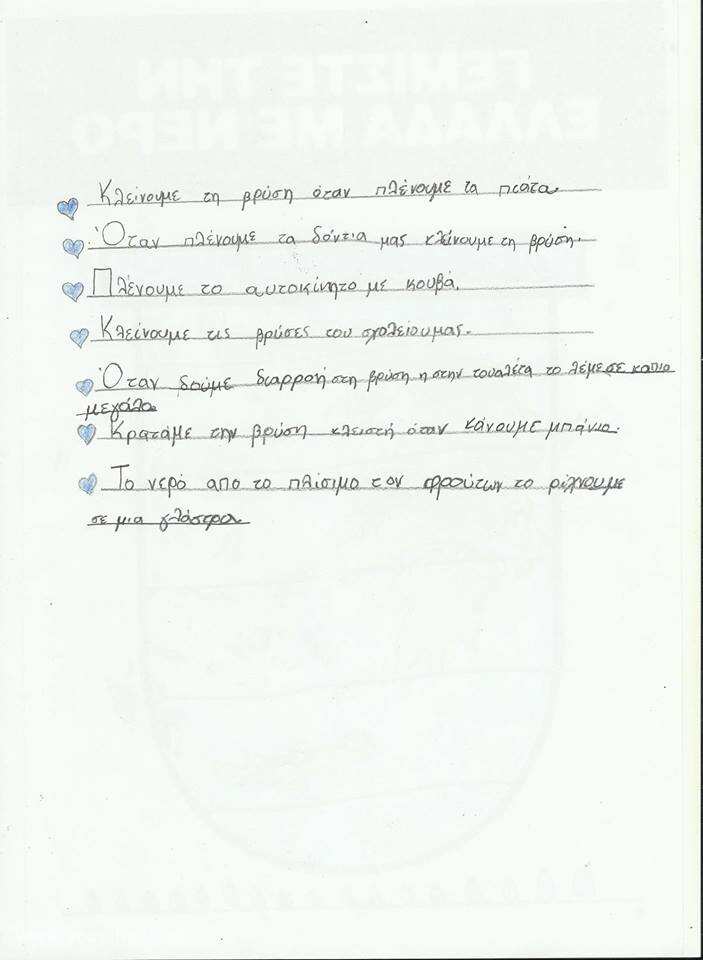 ΓΕΜΙΣΤΕ ΤΗΝ
ΕΛΛΑΔΑ ΜΕ ΝΕΡΟ
Κλείνουμε τη βρύση όταν πλένουμε τα πιάτα.
Όταν πλένουμε τα δόντια μας κλείνουμε τη βρύση.
Πλένουμε το αυτοκίνητό με κουβά.
Κλείνουμε τις βρύσες του σχολείου μας.
Όταν δούμε διαρροή στη βρύση η στην τουαλέτα το λέμε σε καπιο
μεγάλο
Κρατάμε την βρύση κλειστή όταν κάνουμε μπάνιο.
Το νερό απο το πλίσιμο τον φρούτων το ρίχνουμε
σε μια γλάστρα